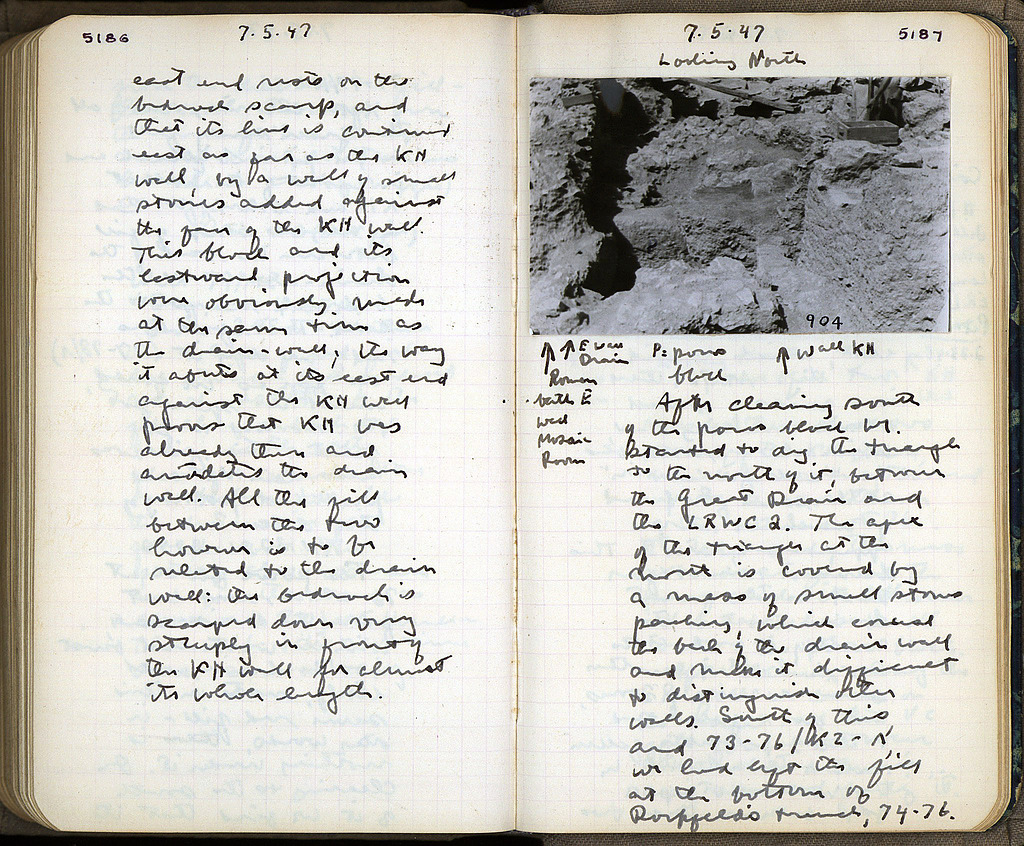 5186
7.5.47
east end rests on the
bedrock scarp, and
that its line is continued
east as far as the KH
wall, by a wall of small
stones added against
the face of the KH wall.
This block and its
eastward projection
were obviously made
at the same time as
the drain-wall; the way
it abuts at its east end
against the KH wall
proves that KH was
already there and
antedates the drain
wall. All the fill
between the two
however is to be
related to the drain
wall: the bedrock is
scarped down very
steeply in front of
the KH wall for almost
its whole length.
7.5.47
5187
Looking North
904
↑ ↑ E wall
Drain
Roman
bath E
wall
Mosaic
Room
P: poros
block
↑ wall KH
After clearing south
of the poros block we
started to dig the triangle
to the north of it, between
the Great Drain and
the LRWC 2. The apex
of the triangle at the
north is covered by
a mass of small stone
packing, which conceal
the back of the drain wall
and makes it difficult
to distinguish other
walls. South of this,
and 73-76/KZ-N,
we had left the fill
at the bottom of
Dorpfeld's trench, 74-76.